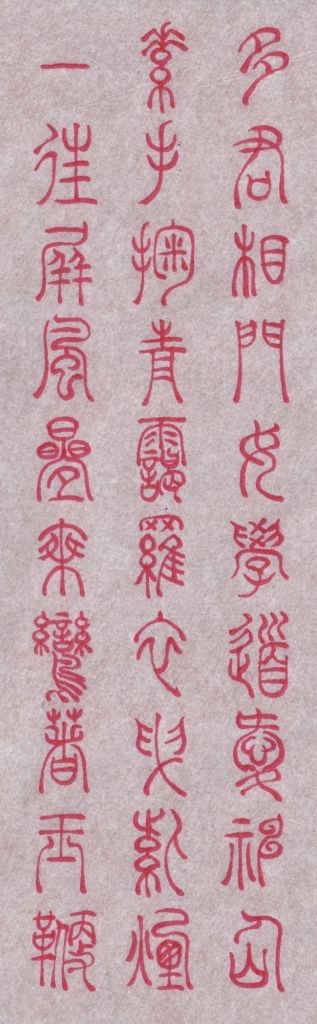 多君相門女學道愛神仙
素手掬青靄羅衣曳紫煙
一往屏風疊乘鸞著玉鞭